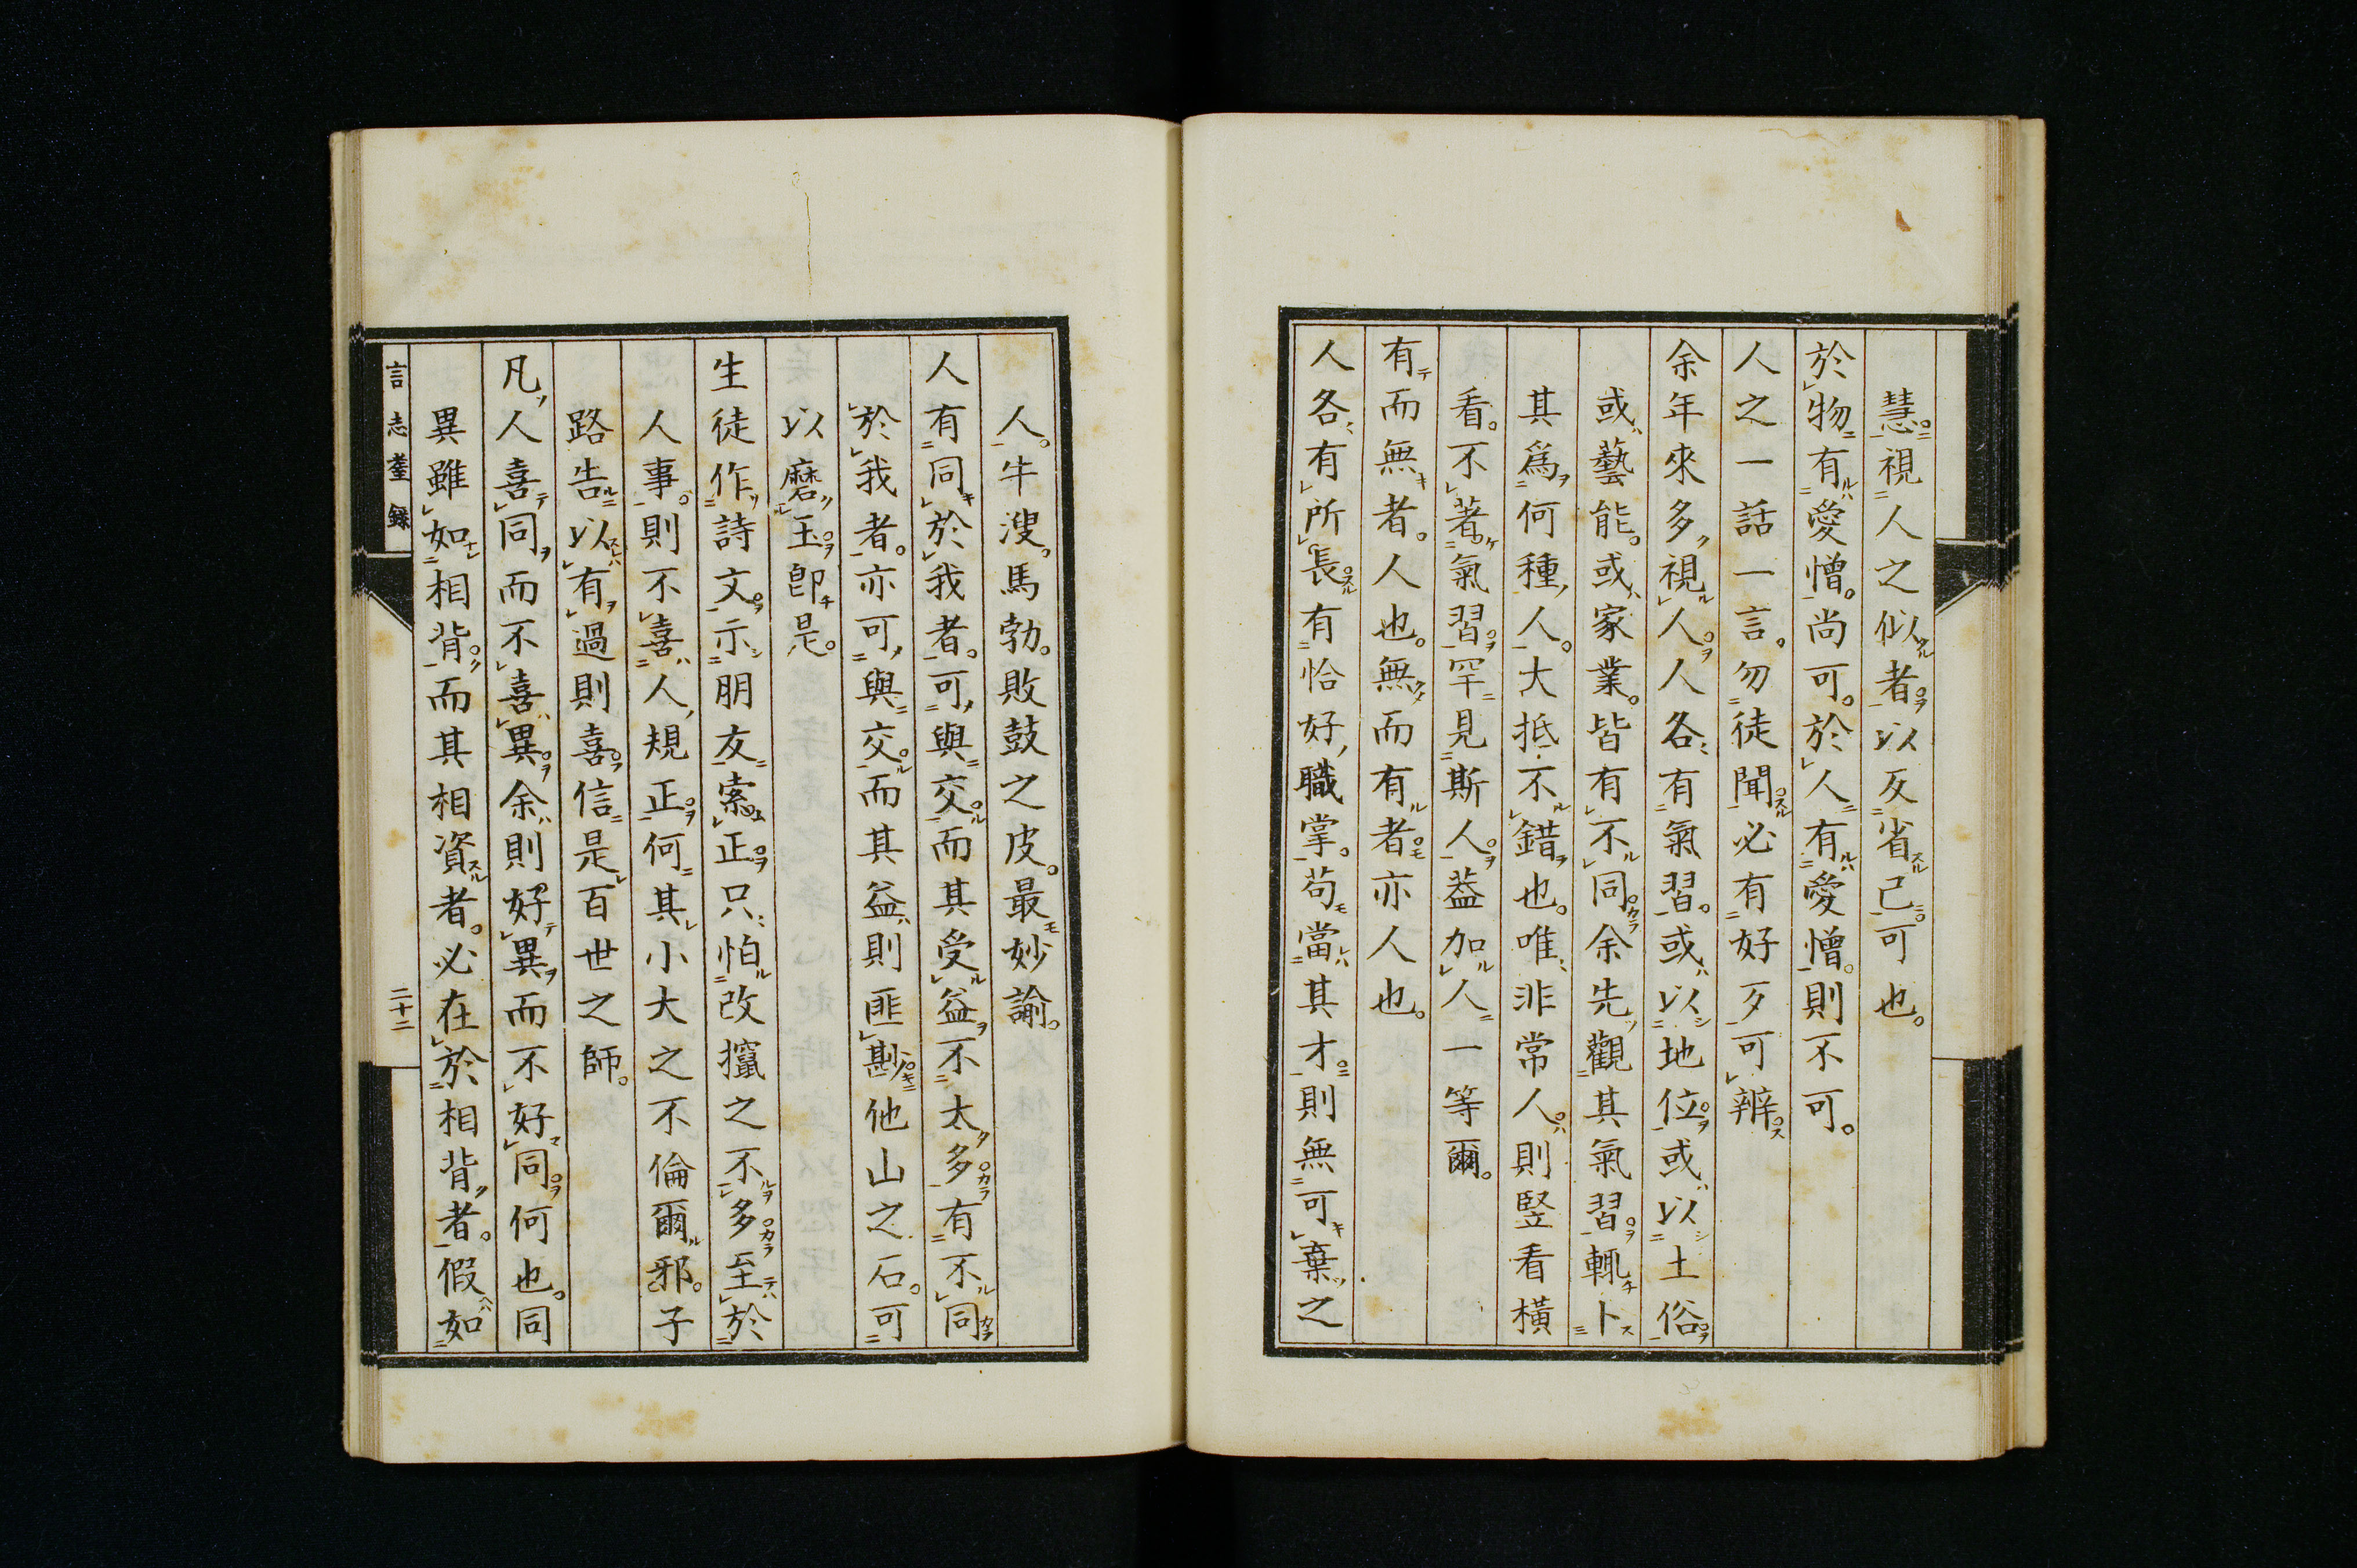 慧。視人之似者。以反省己。可也。
於物有愛憎。尚可。於人有愛憎。則不可。
人之一話一言。勿徒聞。必有好歹可辨。
余年來多視人。人各有氣習。或以地位。或以土俗。
或藝能。或家業。皆有不同。余先觀其氣習。輒卜
其爲何種人。大抵不錯也。唯非常人。則竪看橫
看。不著氣習。罕見斯人。葢加人一等爾。
有而無者。人也。無而有者。亦人也。
人各有所長。有恰好職掌。苟當其才。則無可棄之
人。牛溲。馬勃。敗鼓之皮。最妙諭。
人有同於我者。可與交。而其受益不太多。有不同
於我者。亦可與交。而其益則匪尠。他山之石。可
以磨玉。卽是。
生徒作詩文。示朋友索正。只怕改竄之不多。至於
人事。則不喜人規正。何其小大之不倫爾邪。子
路告以有過則喜。信是百世之師。
凡人喜同而不喜異。余則好異而不好同。何也。同
異雖如相背。而其相資者。必在於相背者。假如
言志耋錄
二十二